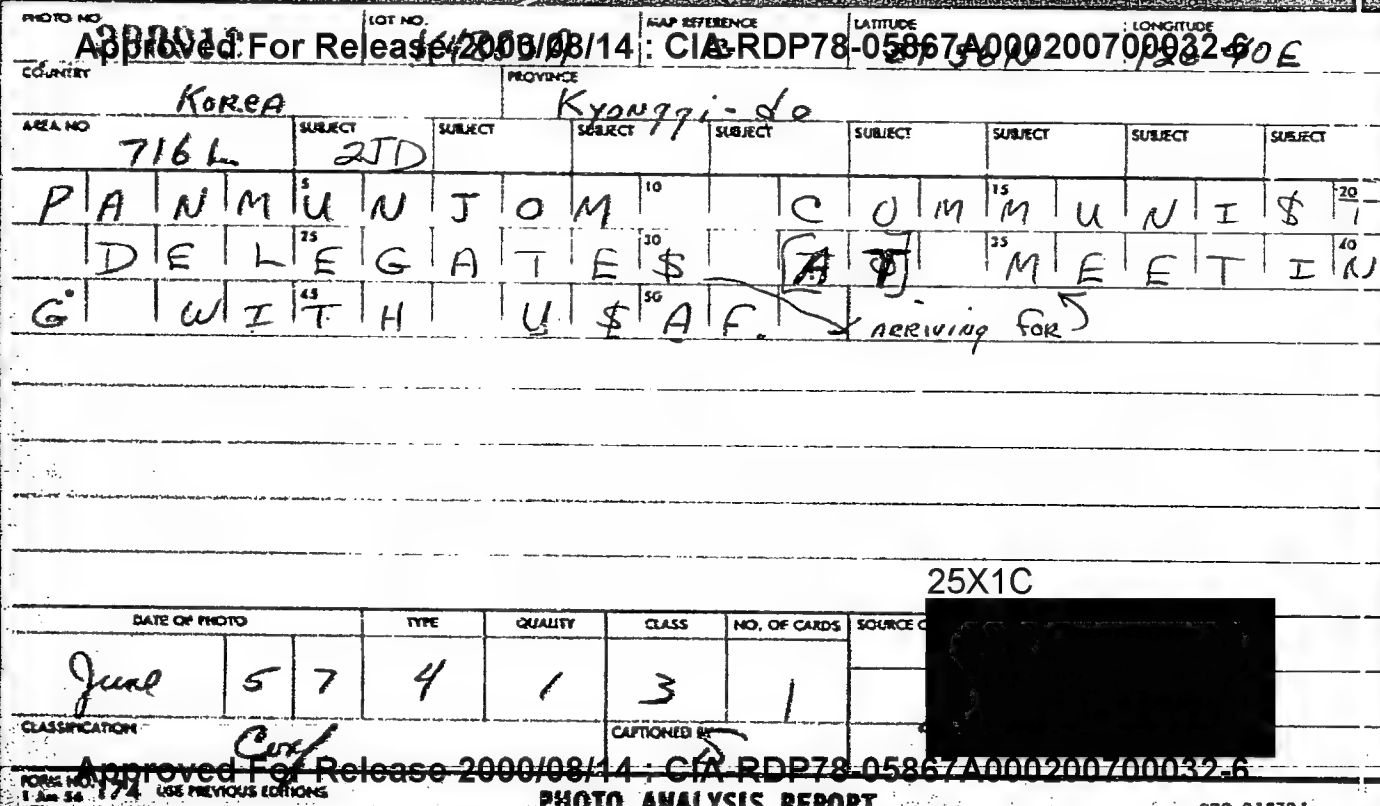 PHOTO NO. LOT NO. MAP REFERENCE LATITUDE LONGITUDE
Approved For Release 2000/08/14 : CIA-RDP78-05867A000200700032-6
COUNTRY PROVINCE
Korea Kyonggi-do
AREA NO SUBJECT SUBJECT SUBJECT SUBJECT SUBJECT SUBJECT SUBJECT SUBJECT
716 L 2JD
5 10 15 20
PANMUNJOM COMMUNI$T
25 30 35 40
DELEGATE$ AT MEETIN
45 50
G WITH U$AF. ARRIVING FOR
25X1C
DATE OF PHOTO TYPE QUALITY CLASS NO. OF CARDS SOURCE
June 5 7 4 1 3 1
CLASSIFICATION CAPTIONED BY
Conf
Approved For Release 2000/08/14 : CIA-RDP78-05867A000200700032-6
FORM NO. 174 USE PREVIOUS EDITIONS
1 Jan 56
PHOTO ANALYSIS REPORT